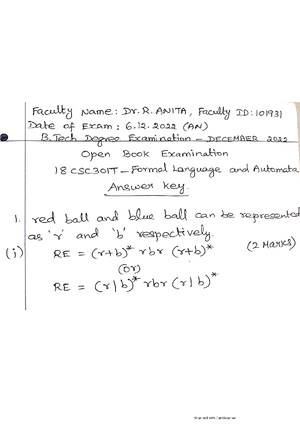 Faculty Name: Dr. R. ANITA, Faculty ID: 101931
Date of Exam: 6.12.2022 (AN)
B.Tech Degree Examination - DECEMBER 2022
Open Book Examination
18CSC301T - Formal Language and Automata
Answer key.
1. red ball and blue ball can be represented
as 'r' and 'b' respectively.
(i) RE = (r+b)* rbr (r+b)* (2 Marks)
(or)
RE = (r|b)* rbr (r|b)*
Scanned with CamScanner